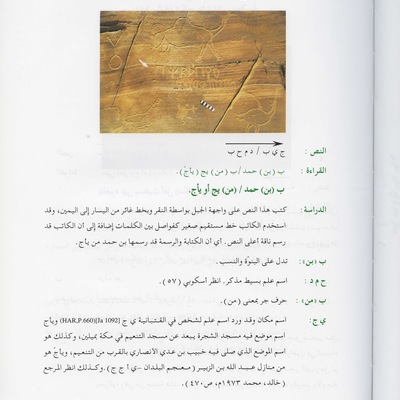 النص : ج ي ب / د م ح ب
القراءة : ب (بن) حمد / ب (من) يج (يأج) .
ب (بن) حمد / (من) يج أو يأج.
الدراسة: كتب هذا النص على واجهة الجبل بواسطة النقر وبخط غائر من اليسار إلى اليمين، وقد
استخدم الكاتب خط مستقيم صغير كفواصل بين الكلمات إضافة إلى أن الكاتب قد
رسم ناقة أعلى النص. أي أن الكتابة والرسمة قد رسمها بن حمد من يأج.
ب «بن»: تدل على البنوّة والنسب.
ح م د : اسم علم بسيط مذكر. انظر أسكوبي (٥٧) .
ب «من» : حرف جر بمعنى (من) .
ي ج : اسم مكان وقد ورد اسم علم لشخص في القتبانية ي ج [Ja 1092](HAR,P.660) ويأج
اسم موضع فيه مسجد الشجرة يبعد عن مسجد التنعيم في مكة بميلين، وكذلك هو
اسم الموضع الذي صلى فيه خبيب بن عدي الأنصاري بالقرب من التنعيم، ويأج هو
من منازل عبد الله بن الزبير (معجم البلدان -ي أ ج ج) . وكذلك انظر المرجع
(خالد، محمد ١٩٧٣م، ص ٤٧٠) .